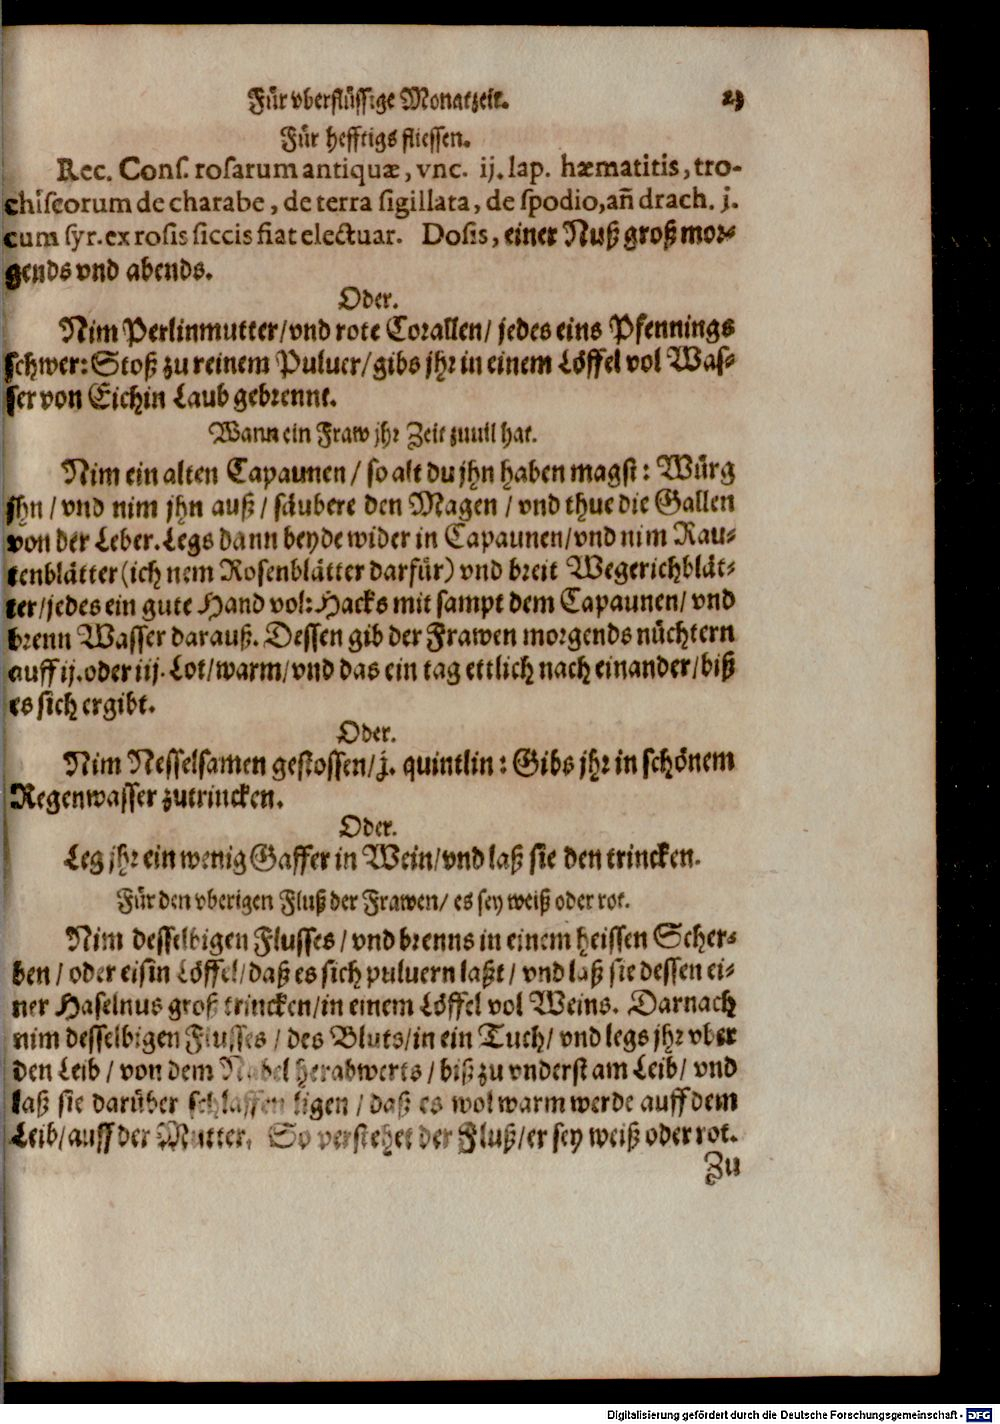 Für vberflüssige Monatzeit. 23
Für hefftigs fliessen.
Rec. Cons. rosarum antiquæ, vnc. ij. lap. hæmatitis, tro-
chiscorum de charabe, de terra sigillata, de spodio, añ drach. j.
cum syr. ex rosis siccis fiat electuar. Dosis, einer Nuß groß mor-
gends vnd abends.
Oder.
Nim Perlinmutter/ vnd rote Corallen/ jedes eins Pfennings
schwer: Stoß zu reinem Puluer/ gibs jhr in einem Löffel vol Was-
ser von Eichin Laub gebrennt.
Wann ein Fraw jhr Zeit zuuil hat.
Nim ein alten Capaunen/ so alt du jhn haben magst: Würg
jhn/ vnd nim jhn auß/ säubere den Magen/ vnd thue die Gallen
von der Leber. Legs dann beyde wider in Capaunen/ vnd nim Rau-
tenblätter (ich nem Rosenblätter darfür) vnd breit Wegerichblät-
ter/ jedes ein gute Hand vol: Hacks mit sampt dem Capaunen/ vnd
brenn Wasser darauß. Dessen gib der Frawen morgends nüchtern
auff ij. oder iij. Lot/ warm/ vnd das ein tag ettlich nach einander/ biß
es sich ergibt.
Oder.
Nim Nesselsamen gestossen/ j. quintlin: Gibs jhr in schönem
Regenwasser zutrincken.
Oder.
Leg jhr ein wenig Gaffer in Wein/ vnd laß sie den trincken.
Für den vberigen Fluß der Frawen/ es sey weiß oder rot.
Nim desselbigen Flusses/ vnd brenns in einem heissen Scher-
ben/ oder eisin Löffel/ daß es sich puluern laßt/ vnd laß sie dessen ei-
ner Haselnus groß trincken/ in einem Löffel vol Weins. Darnach
nim desselbigen Flusses/ des Bluts/ in ein Tuch/ vnd legs jhr vber
den Leib/ von dem Nabel herabwerts/ biß zu vnderst am Leib/ vnd
laß sie darüber schlaffen ligen/ daß es wol warm werde auff dem
Leib/ auff der Mutter. So verstehet der Fluß/ er sey weiß oder rot.
Zu
Digitalisierung gefördert durch die Deutsche Forschungsgemeinschaft - DFG